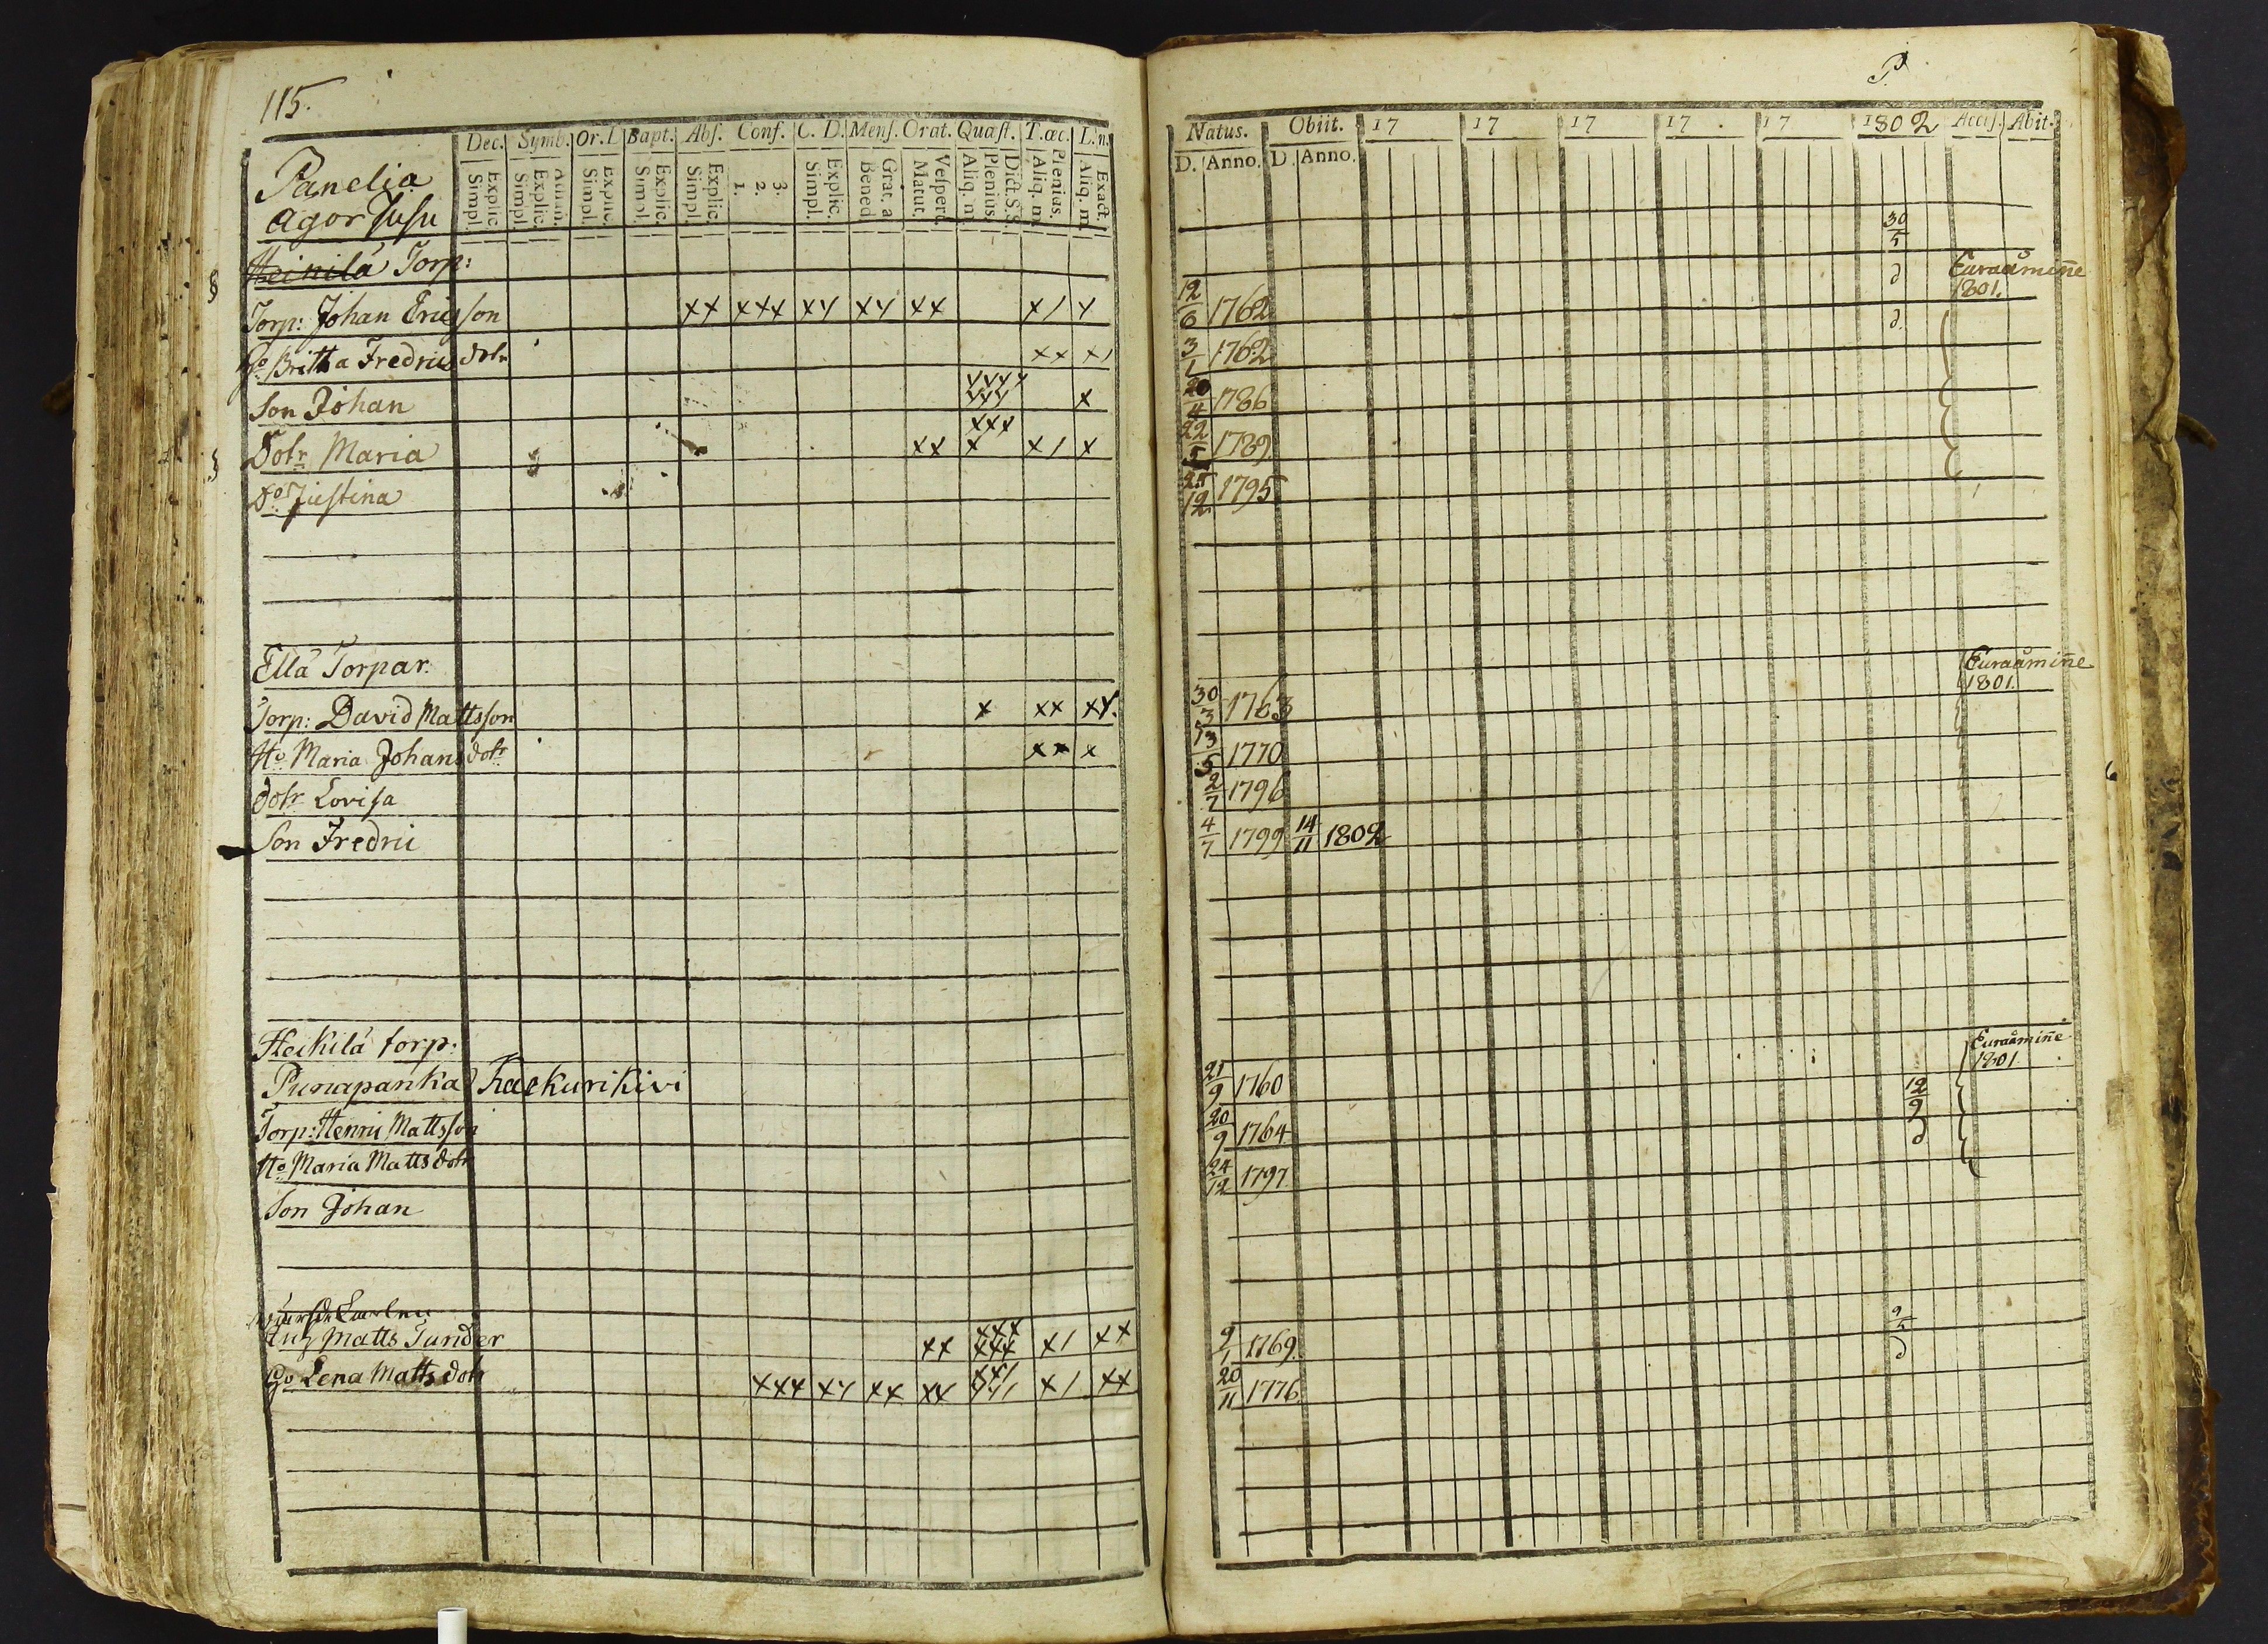 115.
Dec. Symb. Or. D Bapt. Abſ. Conf. C. D. Menſ. Orat. Quæſt. T. æc. L. n.
Explic. Simpl. Explic. Simpl. Explic. Simpl. Explic. Simpl. Explic. Simpl. 3. 2. 1. Explic. Simpl. Grat. a Bened. Veſpert. Matut. Dict. S.S. Plenius. Aliq. m Plenius. Aliq. m Exact. Aliq. m
Panelia
Heinilä Torp:
Torp: Johan Ericsson xx xxx xx xx xx x/ x
Britha Fredricsdotr xx x/
Son Johan xxxx xxx x
Dotr Maria xx xxx x x/ x
Do Justina
Ella Torpar.
Torp: David Mattsson x xx xx.
Ho Maria Johansdotr xx x
Dotr Lovisa
Son Fredric
Heikilä torp:
Punapanka Kaekurikivi
Torp: Henric Mattsson
Ho Maria Mattsdotr
Son Johan
Matts Tunder xx xxx xxx x/ xx
Lena Mattsdotr xxx xx xx xx xx/ x/ xx
Natus. Obiit. 17 17 17 17 17 1802 Acceſ. Abit.
D. Anno. D. Anno.
30/5
12/6 1762 d Euraåminne 1801.
3/1 1762 d.
20/4 1786
22/5 1789
25/12 1795
30/3 1763 Euraåminne 1801.
13/5 1770
2/7 1796
4/7 1799 14/11 1802
Euraåminne 1801.
21/9 1760 12/9
20/9 1764 d
24/12 1797
9/1 1769. 9/5
20/11 1776. d